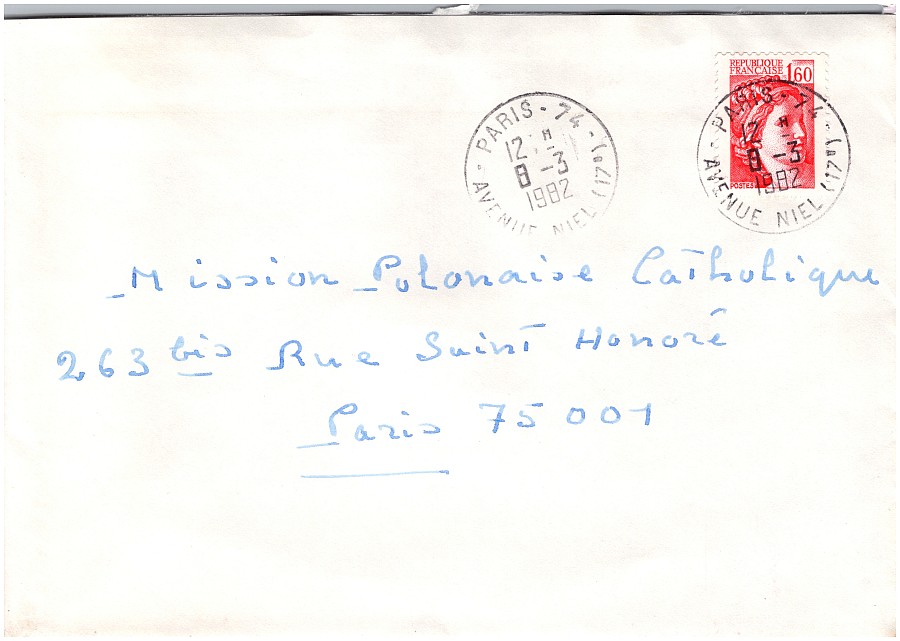 RÉPUBLIQUE
FRANÇAISE 1,60
POSTES
PARIS - 74
12 H
8 -3
1982
AVENUE NIEL (17e)
PARIS - 74
12 H
8 -3
1982
AVENUE NIEL (17e)
Mission Polonaise Catholique
263 bis Rue Saint Honoré
Paris 75001